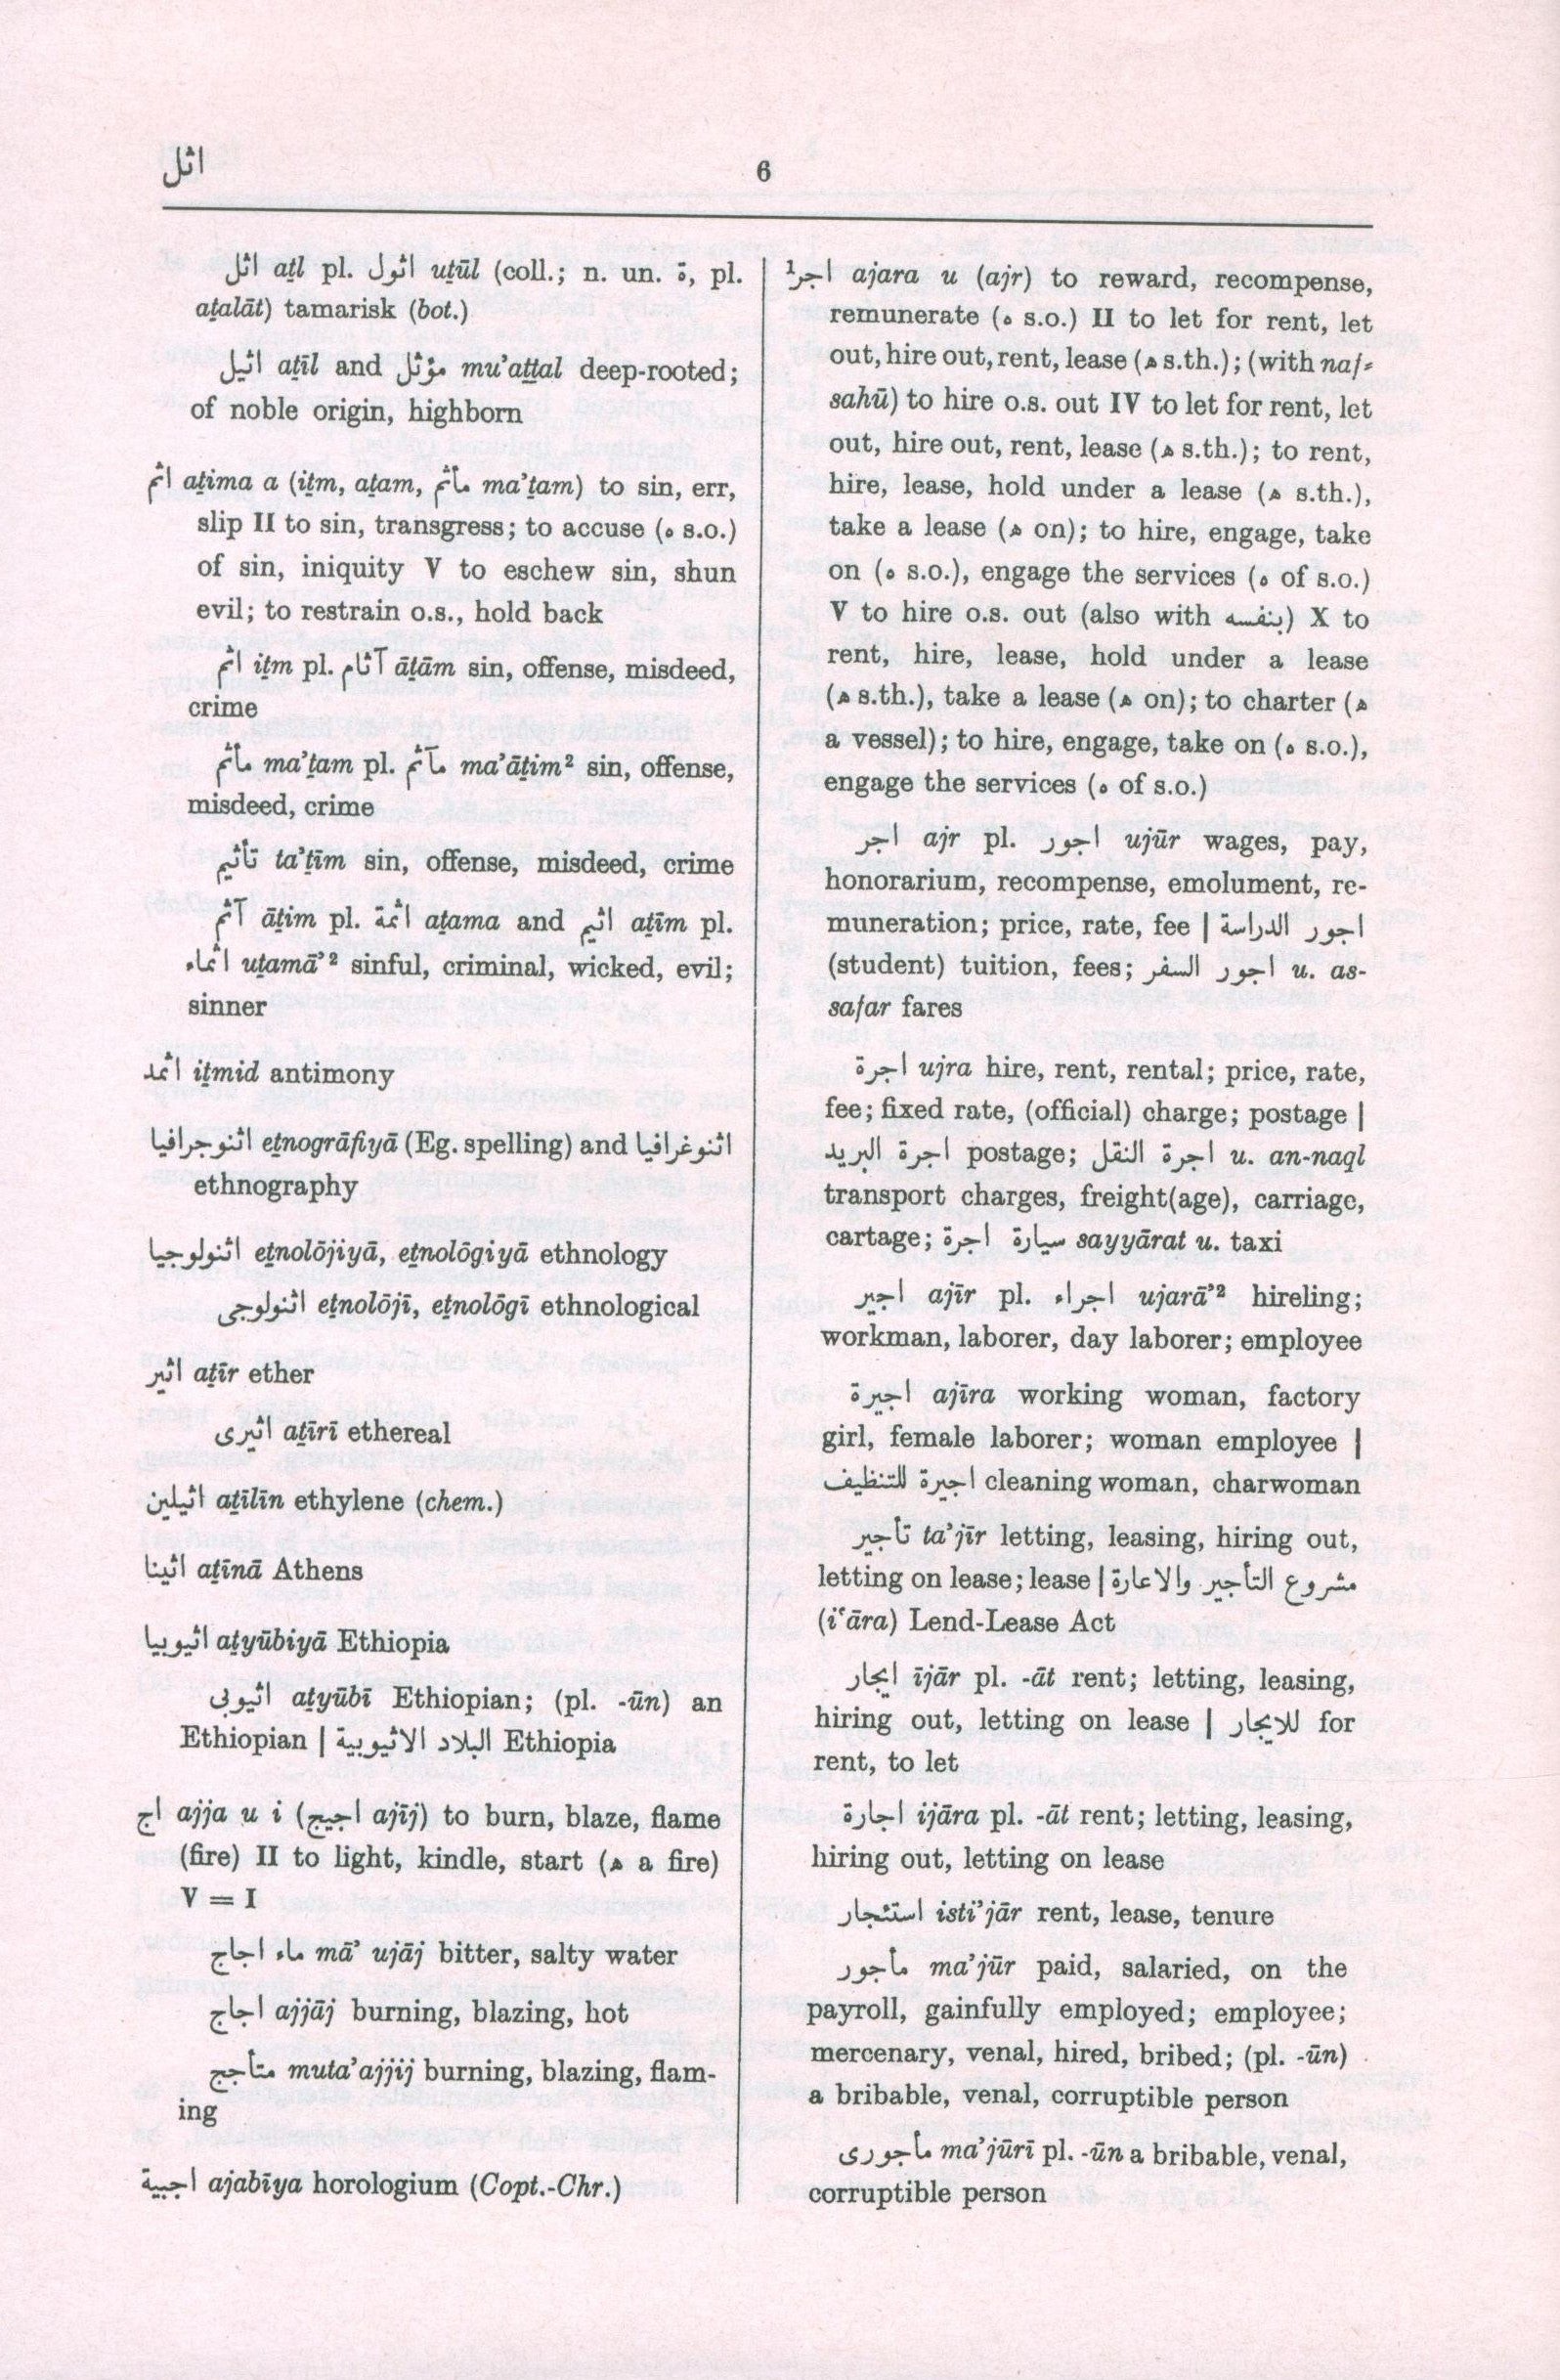 اثل
6
اثل aṯl pl. اثول uṯūl (coll.; n. un. ة, pl.
aṯalāt) tamarisk (bot.)
اثيل aṯīl and مؤثل mu’aṯṯal deep-rooted;
of noble origin, highborn
اثم aṯima a (iṯm, aṯam, مأثم ma’ṯam) to sin, err,
slip II to sin, transgress; to accuse (ه s.o.)
of sin, iniquity V to eschew sin, shun
evil; to restrain o.s., hold back
اثم iṯm pl. آثام āṯām sin, offense, misdeed,
crime
مأثم ma’ṯam pl. مآثم ma’āṯim² sin, offense,
misdeed, crime
تأثيم ta’ṯīm sin, offense, misdeed, crime
آثم āṯim pl. اثمة aṯama and اثيم aṯīm pl.
اثماء uṯamā’² sinful, criminal, wicked, evil;
sinner
اثمد iṯmid antimony
اثنوجرافيا eṯnogrāfiyā (Eg. spelling) and اثنوغرافيا
ethnography
اثنولوجيا eṯnolōjiyā, eṯnolōgiyā ethnology
اثنولوجى eṯnolōjī, eṯnolōgī ethnological
اثير aṯīr ether
اثيرى aṯīrī ethereal
اثيلين aṯīlīn ethylene (chem.)
اثينا aṯīnā Athens
اثيوبيا aṯyūbiyā Ethiopia
اثيوبى aṯyūbī Ethiopian; (pl. -ūn) an
Ethiopian | البلاد الاثيوبية Ethiopia
اج ajja u i (اجيج ajīj) to burn, blaze, flame
(fire) II to light, kindle, start (ﻫ a fire)
V = I
ماء اجاج mā’ ujāj bitter, salty water
اجاج ajjāj burning, blazing, hot
متأجج muta’ajjij burning, blazing, flam-
ing
اجبية ajabīya horologium (Copt.-Chr.)
اجر¹ ajara u (ajr) to reward, recompense,
remunerate (ه s.o.) II to let for rent, let
out, hire out, rent, lease (ﻫ s.th.); (with naf-
sahū) to hire o.s. out IV to let for rent, let
out, hire out, rent, lease (ﻫ s.th.); to rent,
hire, lease, hold under a lease (ﻫ s.th.),
take a lease (ﻫ on); to hire, engage, take
on (ه s.o.), engage the services (ه of s.o.)
V to hire o.s. out (also with بنفسه) X to
rent, hire, lease, hold under a lease
(ﻫ s.th.), take a lease (ﻫ on); to charter (ﻫ
a vessel); to hire, engage, take on (ه s.o.),
engage the services (ه of s.o.)
اجر ajr pl. اجور ujūr wages, pay,
honorarium, recompense, emolument, re-
muneration; price, rate, fee | اجور الدراسة
(student) tuition, fees; اجور السفر u. as-
safar fares
اجرة ujra hire, rent, rental; price, rate,
fee; fixed rate, (official) charge; postage |
اجرة البريد postage; اجرة النقل u. an-naql
transport charges, freight(age), carriage,
cartage; سيارة اجرة sayyārat u. taxi
اجير ajīr pl. اجراء ujarā’² hireling;
workman, laborer, day laborer; employee
اجيرة ajīra working woman, factory
girl, female laborer; woman employee |
اجيرة للتنظيف cleaning woman, charwoman
تأجير ta’jīr letting, leasing, hiring out,
letting on lease; lease | مشروع التأجير والاعارة
(i‘āra) Lend-Lease Act
ايجار ījār pl. -āt rent; letting, leasing,
hiring out, letting on lease | للايجار for
rent, to let
اجارة ijāra pl. -āt rent; letting, leasing,
hiring out, letting on lease
استئجار isti’jār rent, lease, tenure
مأجور ma’jūr paid, salaried, on the
payroll, gainfully employed; employee;
mercenary, venal, hired, bribed; (pl. -ūn)
a bribable, venal, corruptible person
مأجورى ma’jūrī pl. -ūn a bribable, venal,
corruptible person